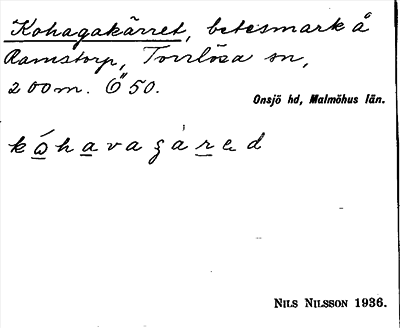 Kohagakärret, betesmark å
Ramstorp, Torrlösa sn,
200m. Ö 50.
Onsjö hd, Malmöhus län.
NILS NILSSON 1936.